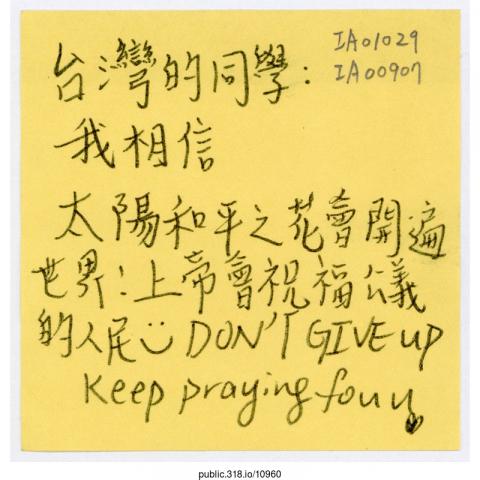 IA01029
IA00907
台灣的同學：
我相信
太陽和平之花會開遍
世界！上帝會祝福公義
的人民 DON'T GIVE UP
Keep praying for u
public.318.io/10960